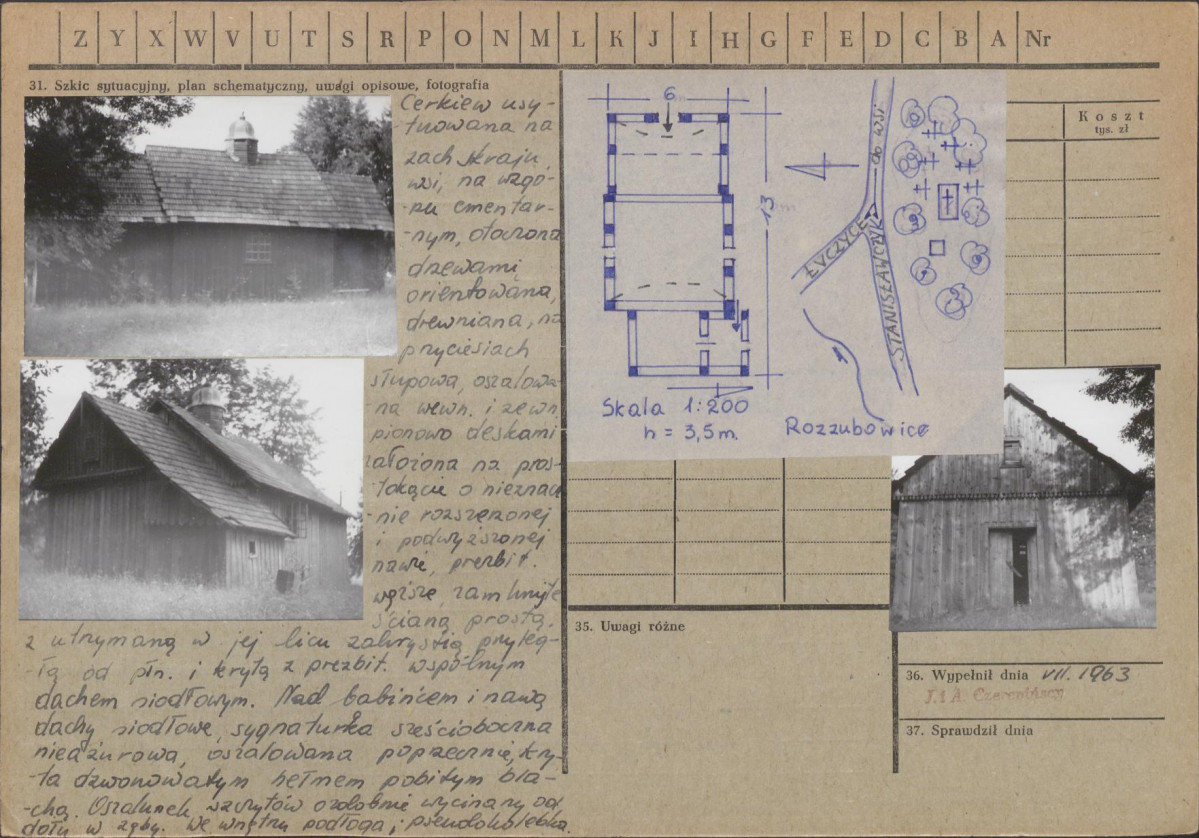 Z Y X W V U T S R P O N M L K J I H G F E D C B A Nr
31. Szkic sytuacyjny, plan schematyczny, uwagi opisowe, fotografia
Cerkiew usy-
-tuowana na
zach skraju
wsi, na wzgó-
-rzu cmentar-
-nym, otoczona
drzewami,
orientowana,
drewniana, na
przyciesiach
słupowa, oszalowa-
-na wewn. i zewn.
pionowo deskami
założona na pros-
-tokącie o nieznacz
-nie rozszerzonej
i podwyższonej
nawie, prezbit.
węższe, zamknięte
ścianą prostą,
z utrzymaną w jej licu zakrystią przyleg-
-łą od płn. i krytą z prezbit. wspólnym
dachem siodłowym. Nad babińcem i nawą
dachy siodłowe, sygnaturka sześcioboczna
nieażurowa, oszalowana poprzecznie, kry-
-ta dzwonowatym hełmem pobitym bla-
-chą. Oszalunek szczytów ozdobnie wycinany od
dołu w zęby. We wnętrzu podłoga i pseudokolebka.
6m
13m
do wsi
ŁUCZYCE
STANISŁAWCZYK
Skala 1:200
h = 3,5m.
Rozzubowice
Koszt
tys. zł
35. Uwagi różne
36. Wypełnił dnia VII. 1963
J. i A. Czerepińscy
37. Sprawdził dnia